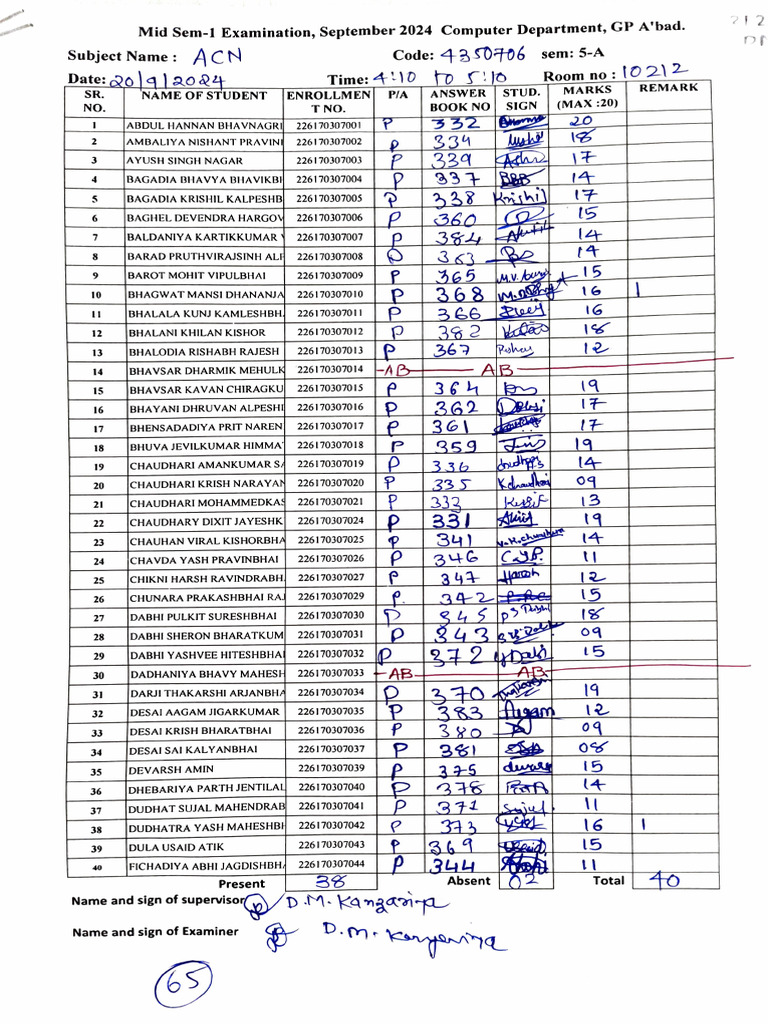 Mid Sem-1 Examination, September 2024 Computer Department, GP A'bad.
Subject Name : ACN Code: 4350706 sem: 5-A
Date: 20/9/2024 Time: 4:10 to 5:10 Room no : 10212
SR. NO. NAME OF STUDENT ENROLLMEN T NO. P/A ANSWER BOOK NO STUD. SIGN MARKS (MAX :20) REMARK
1 ABDUL HANNAN BHAVNAGRI 226170307001 P 332 20
2 AMBALIYA NISHANT PRAVINI 226170307002 P 334 18
3 AYUSH SINGH NAGAR 226170307003 P 339 17
4 BAGADIA BHAVYA BHAVIKBH 226170307004 P 337 BBB 14
5 BAGADIA KRISHIL KALPESHB 226170307005 P 338 Krishil 17
6 BAGHEL DEVENDRA HARGOV 226170307006 P 360 15
7 BALDANIYA KARTIKKUMAR V 226170307007 P 384 14
8 BARAD PRUTHVIRAJSINH ALP 226170307008 P 363 14
9 BAROT MOHIT VIPULBHAI 226170307009 P 365 15
10 BHAGWAT MANSI DHANANJA 226170307010 P 368 16 1
11 BHALALA KUNJ KAMLESHBH 226170307011 P 366 16
12 BHALANI KHILAN KISHOR 226170307012 P 382 18
13 BHALODIA RISHABH RAJESH 226170307013 P 367 12
14 BHAVSAR DHARMIK MEHULK 226170307014 AB AB
15 BHAVSAR KAVAN CHIRAGKU 226170307015 P 364 19
16 BHAYANI DHRUVAN ALPESHI 226170307016 P 362 17
17 BHENSADADIYA PRIT NAREN 226170307017 P 361 17
18 BHUVA JEVILKUMAR HIMMA 226170307018 P 359 19
19 CHAUDHARI AMANKUMAR SA 226170307019 P 336 14
20 CHAUDHARI KRISH NARAYAN 226170307020 P 335 09
21 CHAUDHARI MOHAMMEDKAS 226170307021 P 333 13
22 CHAUDHARY DIXIT JAYESHK 226170307024 P 331 19
23 CHAUHAN VIRAL KISHORBHA 226170307025 P 341 14
24 CHAVDA YASH PRAVINBHAI 226170307026 P 346 C.Y.P. 11
25 CHIKNI HARSH RAVINDRABH 226170307027 P 347 Harsh 12
26 CHUNARA PRAKASHBHAI RAJ 226170307029 P. 342 15
27 DABHI PULKIT SURESHBHAI 226170307030 P 345 18
28 DABHI SHERON BHARATKUM 226170307031 P 343 09
29 DABHI YASHVEE HITESHBHAI 226170307032 P 372 15
30 DADHANIYA BHAVY MAHESH 226170307033 AB AB
31 DARJI THAKARSHI ARJANBHA 226170307034 P 370 19
32 DESAI AAGAM JIGARKUMAR 226170307035 P 383 Aagam 12
33 DESAI KRISH BHARATBHAI 226170307036 P 380 09
34 DESAI SAI KALYANBHAI 226170307037 P 381 08
35 DEVARSH AMIN 226170307039 P 375 15
36 DHEBARIYA PARTH JENTILAL 226170307040 P 378 14
37 DUDHAT SUJAL MAHENDRAB 226170307041 P 371 Sujal 11
38 DUDHATRA YASH MAHESHBH 226170307042 P 373 16 1
39 DULA USAID ATIK 226170307043 P 369 Usaid 15
40 FICHADIYA ABHI JAGDISHBHA 226170307044 P 344 11
Present 38 Absent 02 Total 40
Name and sign of supervisor D.M. Kanzariya
Name and sign of Examiner D.M. Kanzariya
65